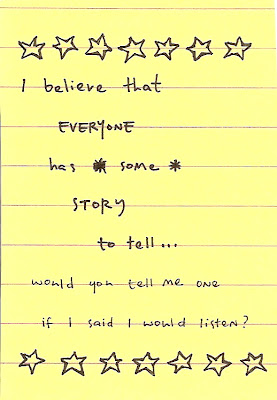 I believe that
EVERYONE
has * some *
STORY
to tell...
would you tell me one
if I said I would listen?